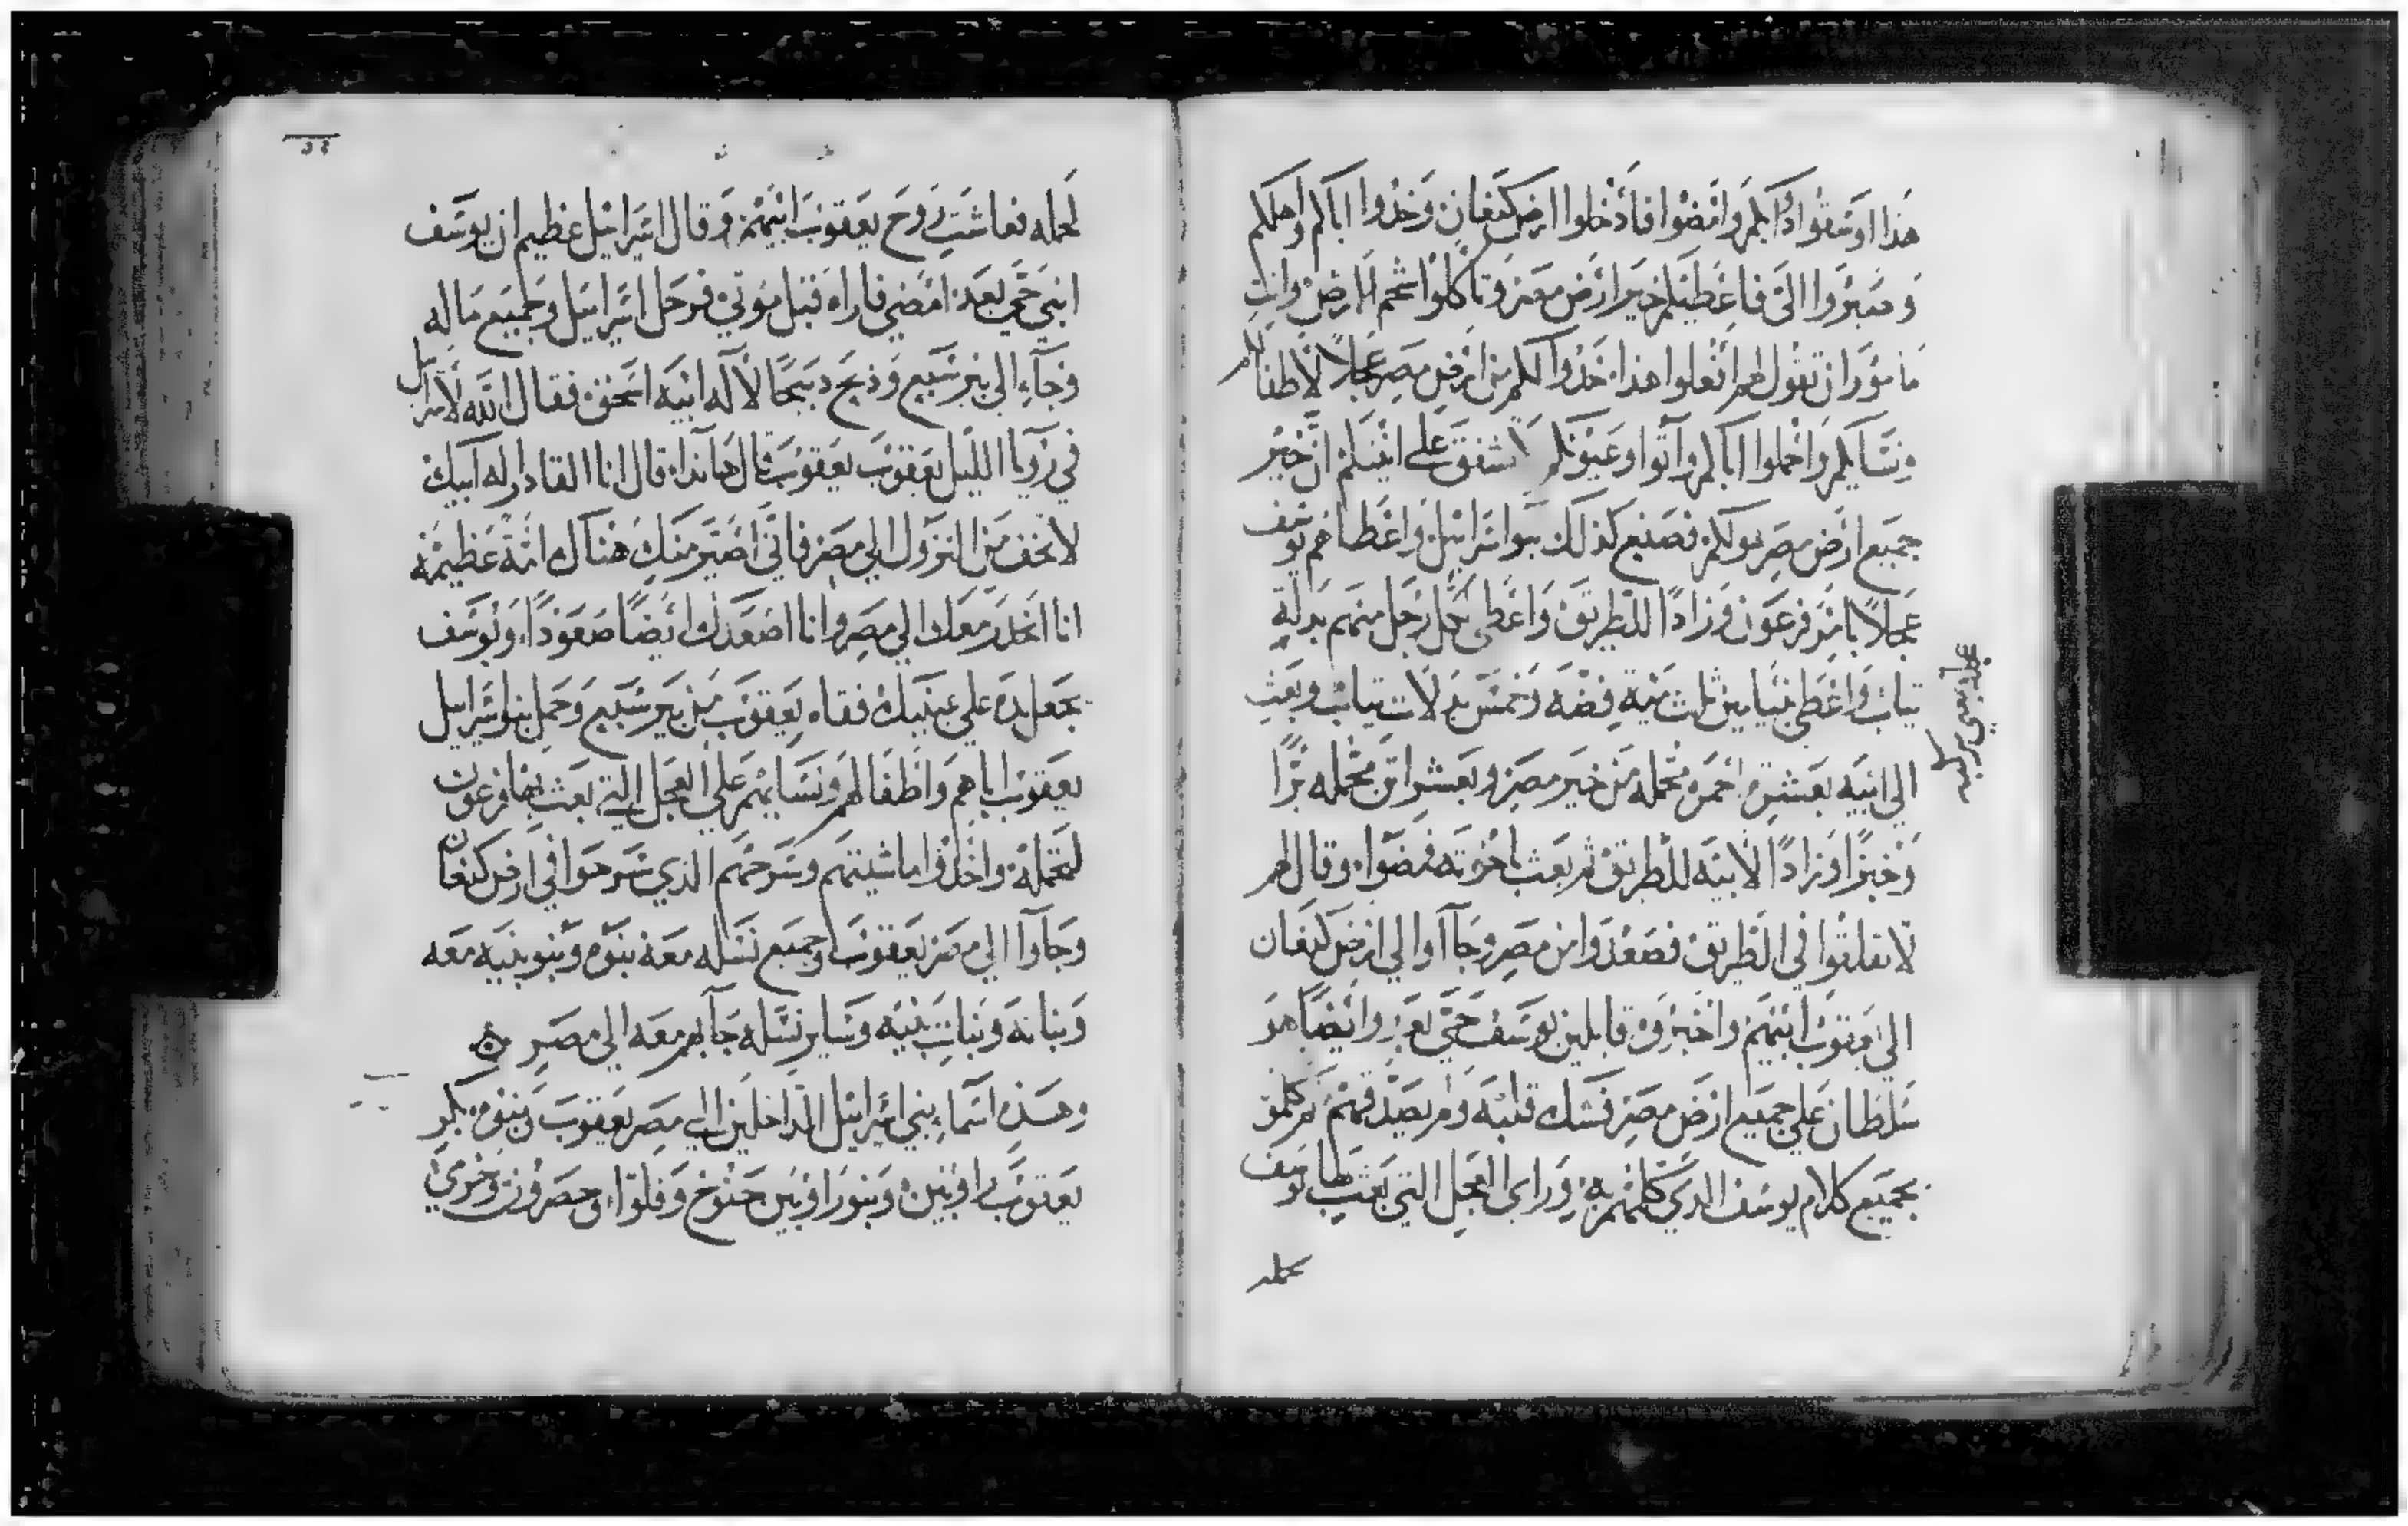 هذا اوسقوا دوابكم وامضوا فادخلوا ارض كنعان وخذوا اباكم واهلكم
وصيروا الىّ فاعطيكم خير ارض مصر وتاكلوا شحم الارض وانت
مامور ان تقول لهم افعلوا هذا خذوا لكم من ارض مصر عجلاً لاطفالكم
ونسايكم واحملوا اباكم وآتوا وعيونكم لا تشفق على انيتكم ان خير
جميع ارض مصر هو لكم فصنع كذلك بنوا اسرائيل واعطاهم يوسف
عجلاً بامر فرعون وزاداً للطريق واعطى لكل رجل منهم بدلة
ثياب واعطى بنيامين ثلث مئة فضه وخمس بدلات ثياب وبعث
الى ابيه بعشرة احمره محمله من خير مصر وبعشر اتن محمله برًّا
وخبزاً وزاداً لابيه للطريق ثم بعث باخوته فمضوا وقال لهم
لا تقلقوا في الطريق فصعدوا من مصر وجاآوا الى ارض كنعان
الى يعقوب ابيهم واخبروه قايلين يوسف حي بعد وايضا هو
سلطان على جميع ارض مصر فشك قلبه ولم يصدقهم ثم كلموه
بجميع كلام يوسف الذي كلمهم به وراى العجل التي بعث بها يوسف
لحمله
عجله يعني مركبه
لحمله فعاشت روح يعقوب ابيهم وقال اسرائيل عظيم ان يوسف
ابني حي بعد امضي فاراه قبل موتي فرحل اسرائيل وجميع ماله
وجآء الى بير سبع وذبح دبيحًا لاله ابيه اسحق فقال الله لاسرائيل
في رؤيا الليل يعقوب يعقوب قال هاندا قال انا القادر اله ابيك
لا تخف من النزول الى مصر فاني اصير منك هناك امة عظيمه
انا انحدر معك الى مصر وانا اصعدك ايضًا صعودًا ويوسف
يجعل يده على عينيك فقام يعقوب من بير سبع وحمل بنو اسرائيل
يعقوب اباهم واطفالهم ونسايهم على العجل التي بعث بها فرعون
لتحمله واخذوا ماشيتهم وسرحهم الذي سرحوا في ارض كنعان
وجآوا الى مصر يعقوب وجميع نسله معه بنوه وبنو بنيه معه
وبناته وبنات بنيه وساير نسله جآ بهم معه الى مصر
وهذه اسماء بني اسرائيل الداخلين الى مصر يعقوب وبنوه بكر
يعقوب راوبين وبنو راوبين حنوخ وفلوا وحصرون وخرمي